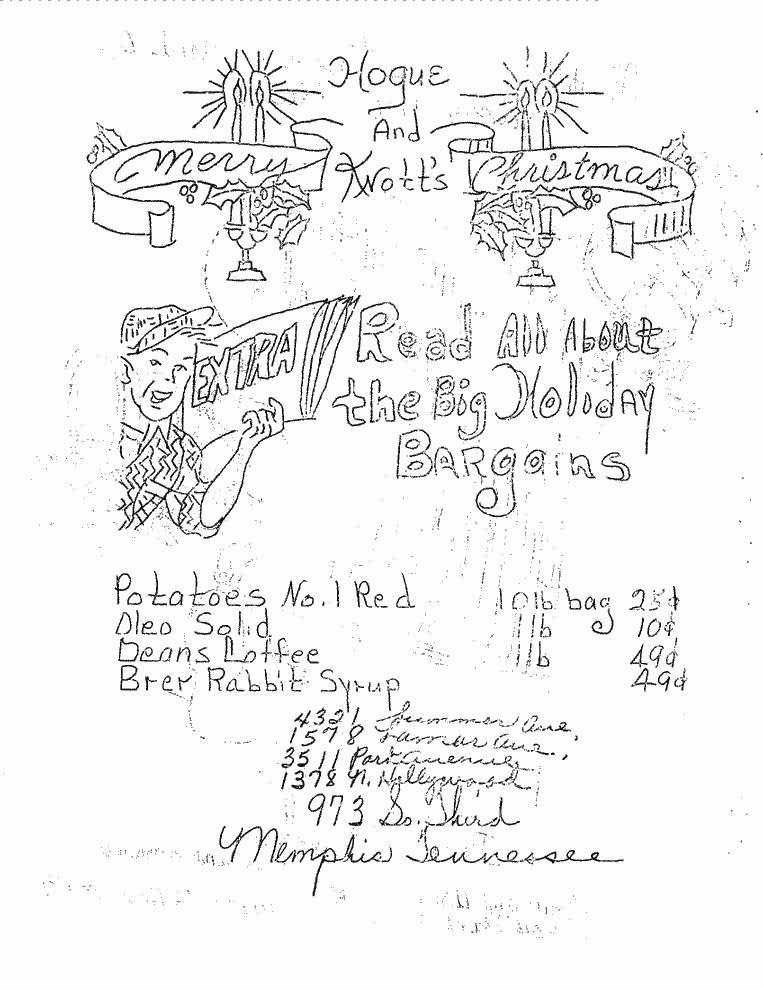 Hogue
And
Merry Knott's Christmas
EXTRA
Read All About
the Big Holiday
BARgains
Potatoes No. 1 Red 10 lb bag 25¢
Oleo Solid 1 lb 10¢
Deans Coffee 1 lb 49¢
Brer Rabbit Syrup 49¢
4321 Summer Ave,
1578 Lamar Ave.,
3511 Park Avenue,
1378 N. Hollywood
973 So. Third
Memphis Tennessee